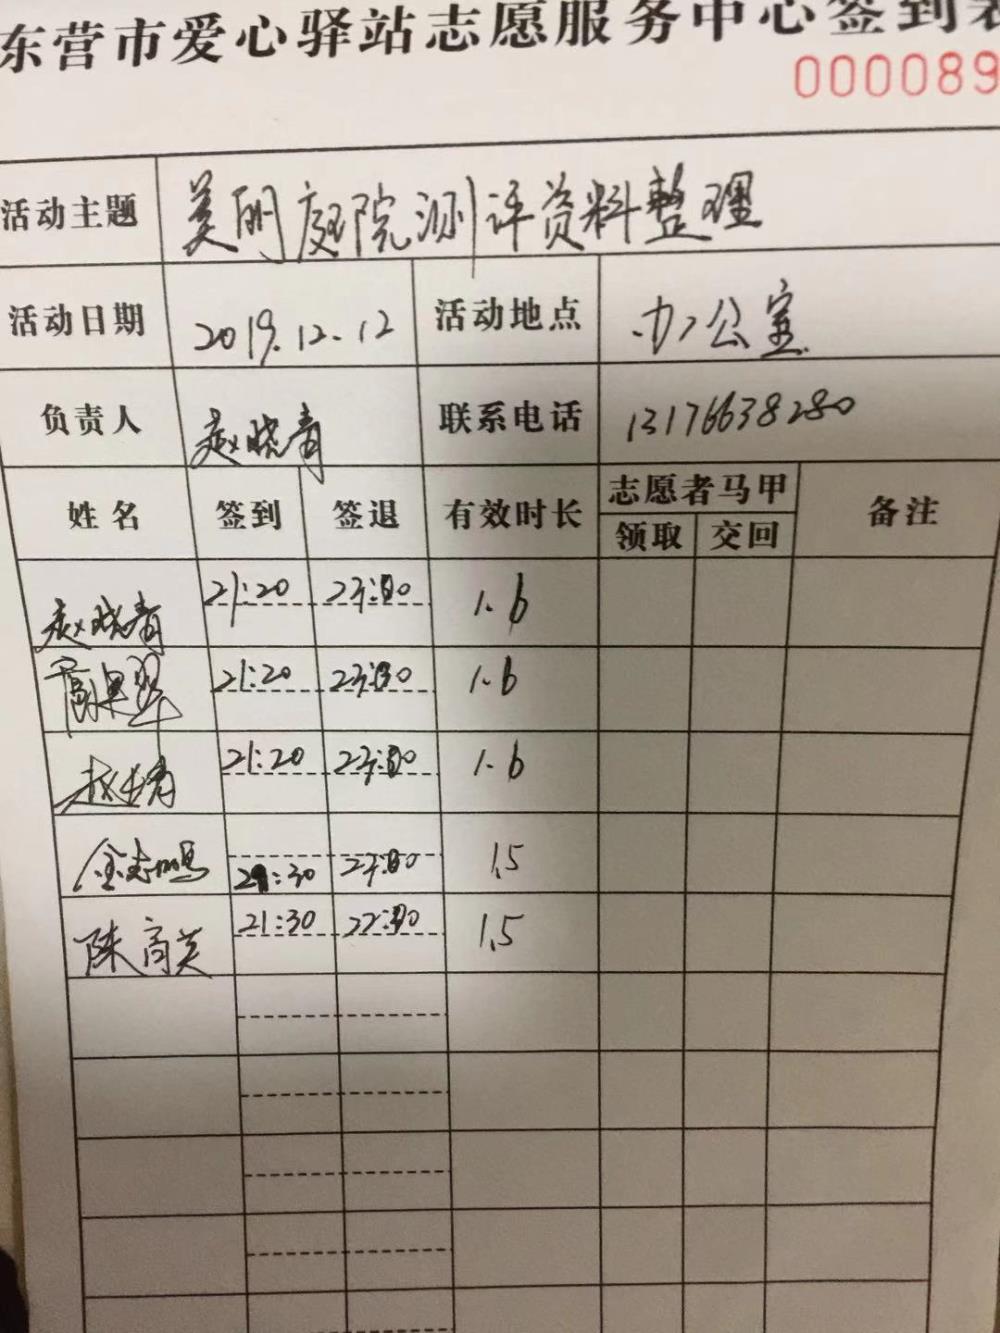 东营市爱心驿站志愿服务中心签到表
000089
活动主题 美丽庭院测评资料整理
活动日期 2019.12.12 活动地点 办公室
负责人 赵晓青 联系电话 13176638280
姓名 签到 签退 有效时长 志愿者马甲 备注
领取 交回
赵晓青 21:20 23:00 1.6
21:20 23:00 1.6
21:20 23:00 1.6
金志鸣 21:30 23:00 1.5
陈高英 21:30 1.5